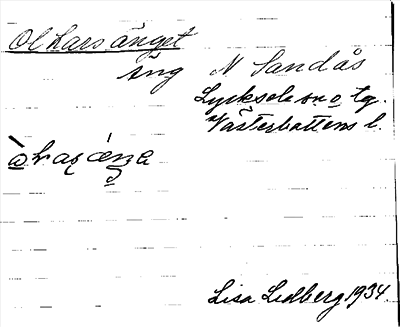 Ol Larsänget
äng N Sandås
Lycksele sn o tg.
Västerbottens l.
Lisa Lidberg 1934.